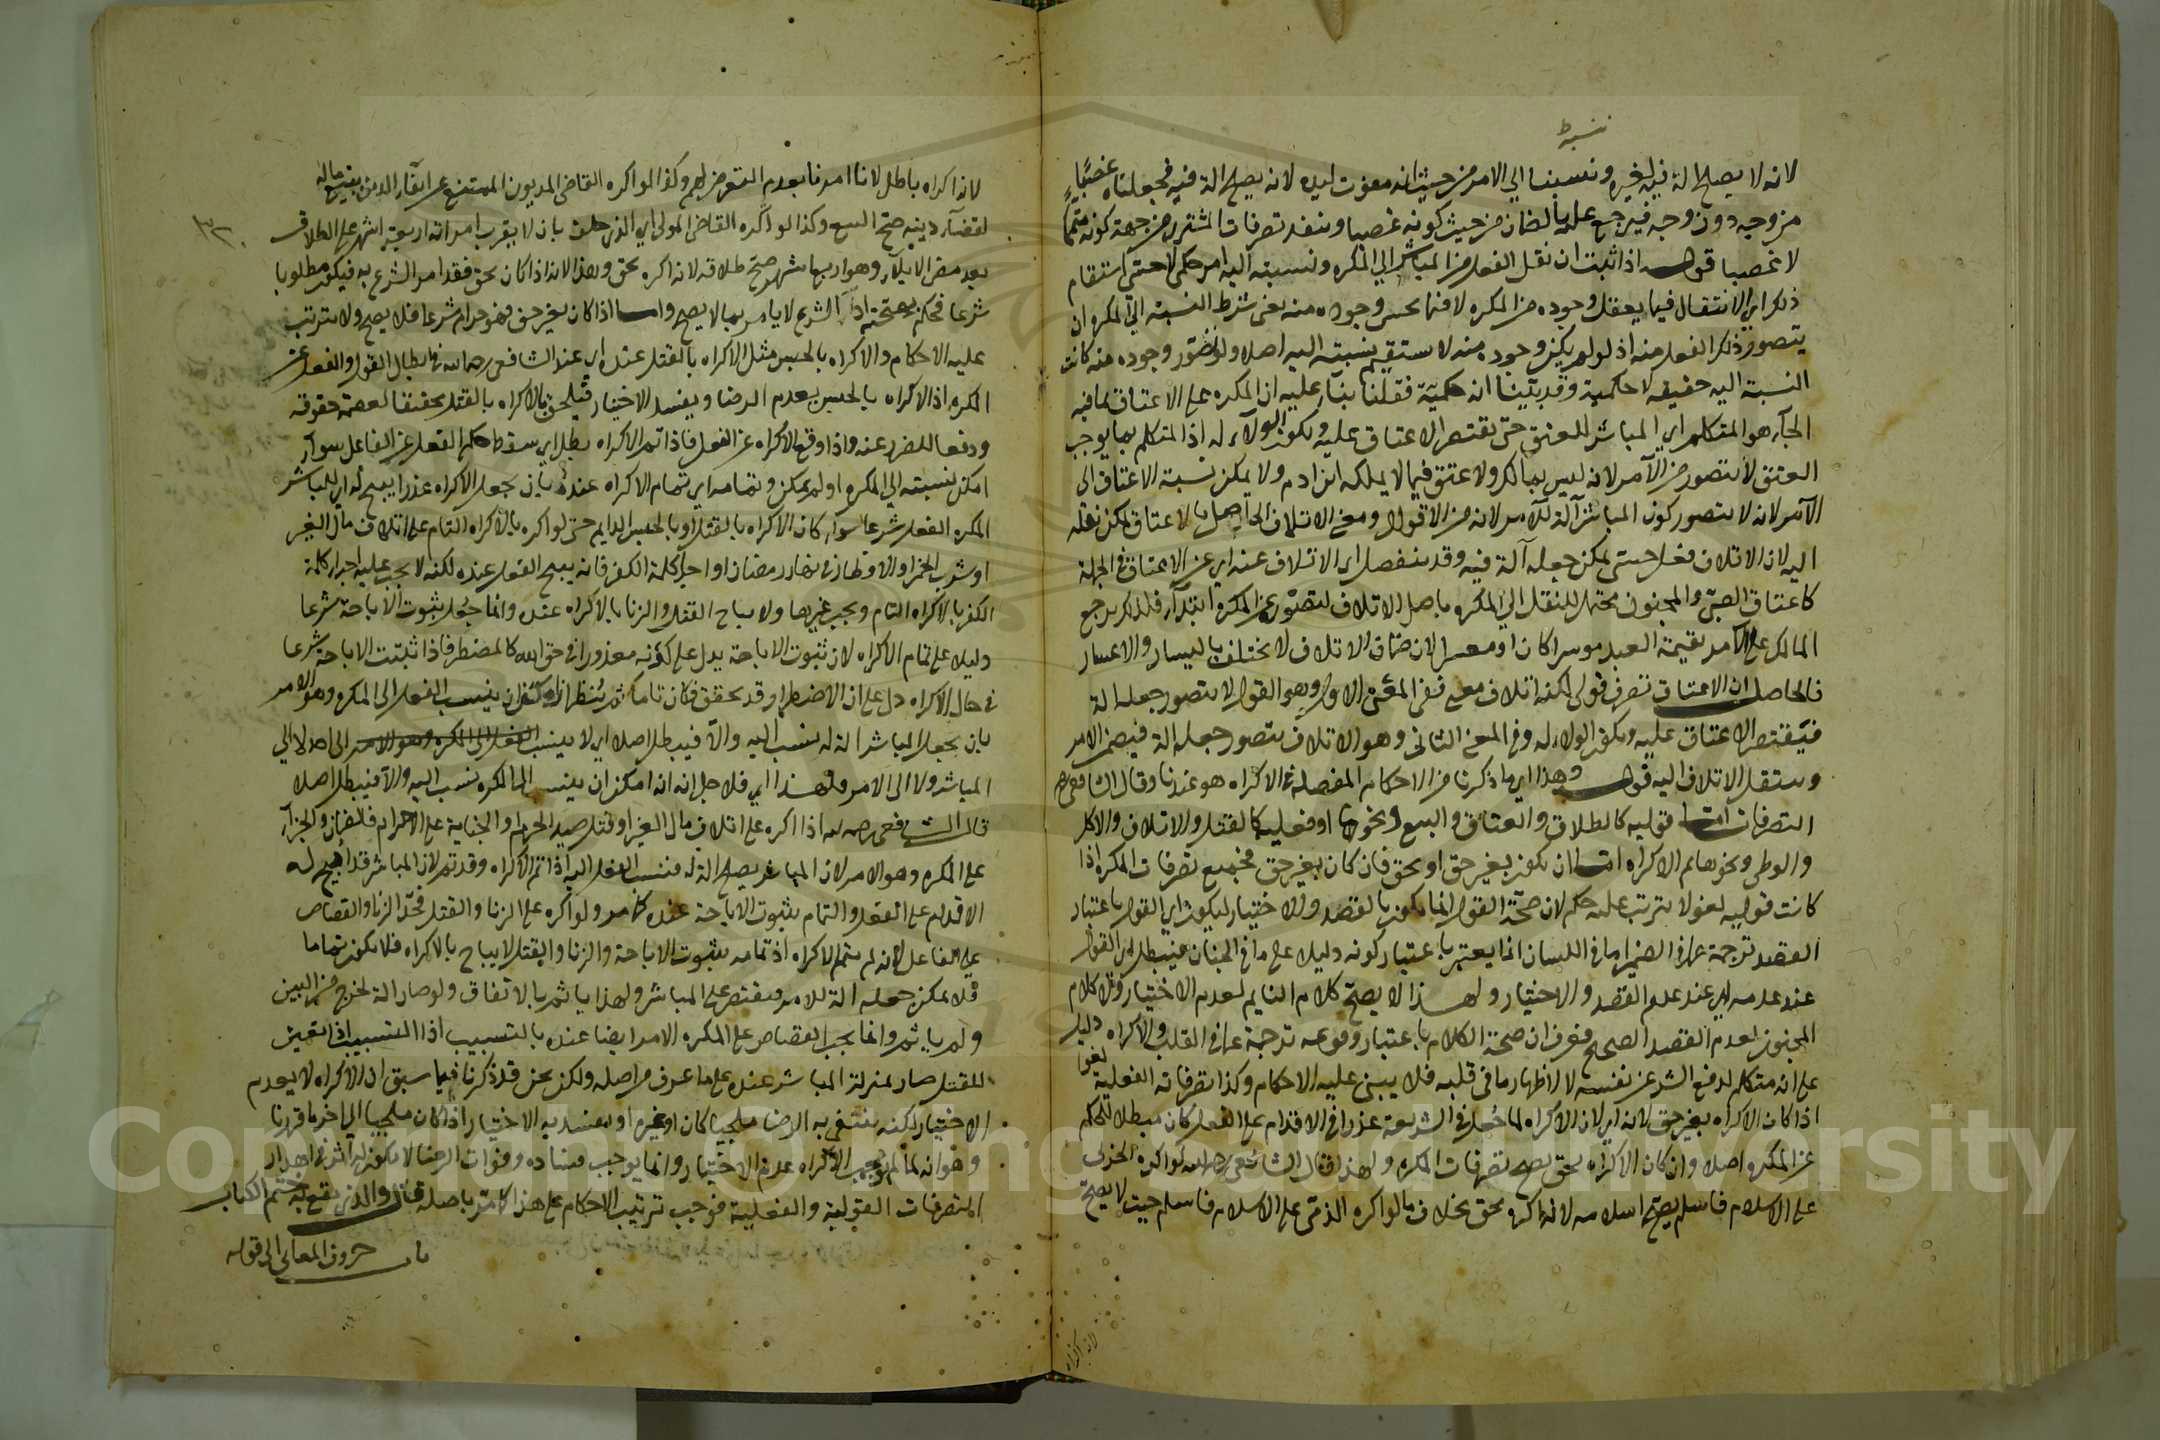 نسبة
لانه لا يصلح الة فيه لغيره ونسبنا الي الامر من حيث انه مفوت ليده لانه يصلح الة فيه فجعلناه غصبا
من وجه دون وجه فيرجع عليه بالضمان من حيث كونه غصبا وينفذ تصرفات المشتري من جهة كونه
لا غصبا قوله اذا ثبت ان نقل الفعل من المباشر الي المكره ونسبته اليه امر حكمي لا حسي استقام
ذلك اي الانتقال فيما يعقل وجوده من المكره لا فيما يحس وجوده منه يعني شرط النسبة الي المكره ان
يتصور ذلك الفعل منه اذ لو لم يكن وجوده منه لا يستقيم نسبته اليه اصلا ولو تصور وجوده منه كانت
النسبة اليه حقيقه لا حكمية وقد بينا انه حكمية فقلنا بناء عليه ان المكره علي الاعتاق بما فيه
الجاء هو المتكلم اي المباشر للعتق حتي يقتصر الاعتاق عليه ويكون الولاء له اذ المتكلم بما يوجب
العتق لا يتصور من الآمر لانه ليس بمالك ولا عتق فيما لا يملكه ابن ادم ولا يمكن نسبة الاعتاق الي
الآمر لانه لا يتصور كون المباشر آلة للآمر لانه من الاقوال ومعني الاتلاف الحاصل بالاعتاق يمكن نقله
اليه لان الاتلاف فعل حسي يمكن جعله آلة فيه وقد ينفصل اي الاتلاف عنه اي عن الاعتاق في الجملة
كاعتاق الصبي والمجنون محتمل للنقل الي المكره باصل الاتلاف لتصوره عن المكره ابتداء فلذلك يرجع
المالك علي الآمر بقيمة العبد موسرا كان او معسرا لان ضمان الاتلاف لا يختلف باليسار والاعسار
فالحاصل ان الاعتاق تصرف قولي لكنه اتلاف معني ففي المعني الاول وهو القول لا يتصور جعله الة
فيقتصر الاعتاق عليه ويكون الولاء له وفي المعني الثاني وهو الاتلاف يتصور جعله الة فيضمن الامر
وينتقل الاتلاف اليه قوله وهذا اي ما ذكرنا من الاحكام المفصلة في الاكراه هو عندنا وقال الشافعي رح
التصرفات اما قوليه كالطلاق والعتاق والبيع ونحوها او فعليه كالقتل والاتلاف والاكل
والوطي ونحوها ثم الاكراه اما ان يكون بغير حق او بحق فان كان بغير حق فجميع تصرفات المكره اذا
كانت قوليه لغو لا يترتب عليه حكم لان صحة القول انما يكون بالقصد والاختيار ليكون اي القول باعتبار
القصد ترجمة عما في الضمير اما في اللسان انما يعتبر باعتبار كونه دليلا علي ما في الجنان فيبطل اي القول
عند عدمه اي عند عدم القصد والاختيار ولهذا لا يصح كلام النايم لعدم الاختيار ولا كلام
المجنون لعدم القصد الصحيح فعرف ان صحة الكلام باعتبار وقوعه ترجمة عما في القلب والاكراه دليل
علي انه متكلم لدفع الشر عن نفسه لا لاظهار ما في قلبه فلا يبني عليه الاحكام وكذا تصرفاته الفعلية لغوا
اذا كان الاكراه بغير حق لانه اي لان الاكراه لما جعل في الشريعة عذرا في الاقدام علي الفعل كان مبطلا للحكم
عن المكره اصلا وان كان الاكراه بحق يصح تصرفات المكره ولهذا قال الشافعي رحمه الله لو اكره الحربي
علي الاسلام فاسلم يصح اسلامه لانه اكره بحق بخلاف ما لو اكره الذمي علي الاسلام فاسلم حيث لا يصح
لانه اكراه
لانه اكراه باطل لانا امرنا بعدم التعرض لهم وكذا لو اكره القاضي المديون الممتنع عن ايفاء الدين ببيع ماله
لقضاء دينه صح البيع وكذا لو اكره القاضي المولي اي الذي حلف بان لا يقرب امراته اربعة اشهر علي الطلاق
بعد مضي الايلاء وهو اربعة اشهر صح طلاقه لانه اكره بحق وهذا لانه اذا كان بحق فقد امر الشرع به فيكون مطلوبا
شرعا فحكم بصحته اذ الشرع لا يامر بما لا يصح واما اذا كان بغير حق فهو حرام شرعا فلا يصح ولا يترتب
عليه الاحكام والاكراه بالحبس مثل الاكراه بالقتل عنده اي عند الشافعي رحمه الله في ابطال القول والفعل عن
المكره اذ الاكراه بالحبس يعدم الرضا ويفسد الاختيار فيلحق بالاكراه بالقتل تحقيقا لعصمة حقوقه
ودفعا للضرر عنه واذا وقع الاكراه عن الفعل فاذا تم الاكراه بطل اي سقط حكم الفعل عن الفاعل سواء
امكن نسبته الي المكره او لم يمكن وتمامه اي تمام الاكراه عنده بان يجعل الاكراه عذرا يبيح له اي للمباشر
المكره الفعل شرعا سواء كان الاكراه بالقتل او بالحبس الدايم حتي لو اكره بالاكراه التام علي اتلاف مال الغير
او شرب الخمر او الافطار في نهار رمضان او اجراء كلمة الكفر فانه يبيح الفعل عنده لكنه لا يجب عليه اجراء كلمة
الكفر بالاكراه التام ويجب غيرها ولا يباح القتل والزنا بالاكراه عنده وانما جعل ثبوت الاباحة شرعا
دليلا علي تمام الاكراه لان ثبوت الاباحة يدل علي كونه معذورا في حق الله كالمضطر فاذا ثبتت الاباحة شرعا
في حال الاكراه دل علي ان الاضطرار قد تحقق فكان تاما ثم ينظر ان امكن ان ينسب الفعل الي المكره وهو الامر
بان يجعل المباشر الة له ينسب اليه والا فيبطل اصلا اي لا ينسب الفعل الي المكره وهو الامر الي احد لا الي
المباشر ولا الي الامر ولهذا اي فلاجل انه ان امكن ان ينسب الي المكره نسب اليه والا فيبطل اصلا
قال الشافعي رحمه الله اذا اكره علي اتلاف مال الغير او قتل صيد الحرم او الجناية علي الاحرام فالضمان والجزاء
علي المكره وهو الامر لان المباشر يصلح الة له فينسب الفعل اليه اذا تم الاكراه وقد تم لان المباشر قد ابيح له
الاقدام علي الفعل والتمام بثبوت الاباحة عنده كما مر ولو اكره علي الزنا والقتل فحد الزنا والقصاص
علي الفاعل لانه لم يتم الاكراه اذ تمامه بثبوت الاباحة والزنا والقتل لا يباح بالاكراه فلا يكون تماما
فلا يمكن جعله الة للامر فيقتصر علي المباشر ولهذا ياثم بالاتفاق ولو صار الة لخرج من البين
ولم ياثم وانما يجب القصاص علي المكره الامر ايضا عنده بالتسبيب اذ التسبيب اذا تعين
للقتل صار بمنزلة المباشر عنده علي ما عرف من اصله ولكن نحن قد ذكرنا فيما سبق ان الاكراه لا يعدم
الاختيار لكنه ينتفي به الرضا ملجيا كان او غيره او يفسد به الاختيار اذا كان ملجيا الي اخر ما قررنا
وهو انه لما لم يوجب الاكراه عدم الاختيار وانما يوجب فساده وفوات الرضا لا يكون له اثر في اهدار
التصرفات القولية والفعلية فوجب ترتيب الاحكام علي هذا كما مر باصله قال والذي يقع به ختم الكتاب
باب حروف المعاني الي قوله